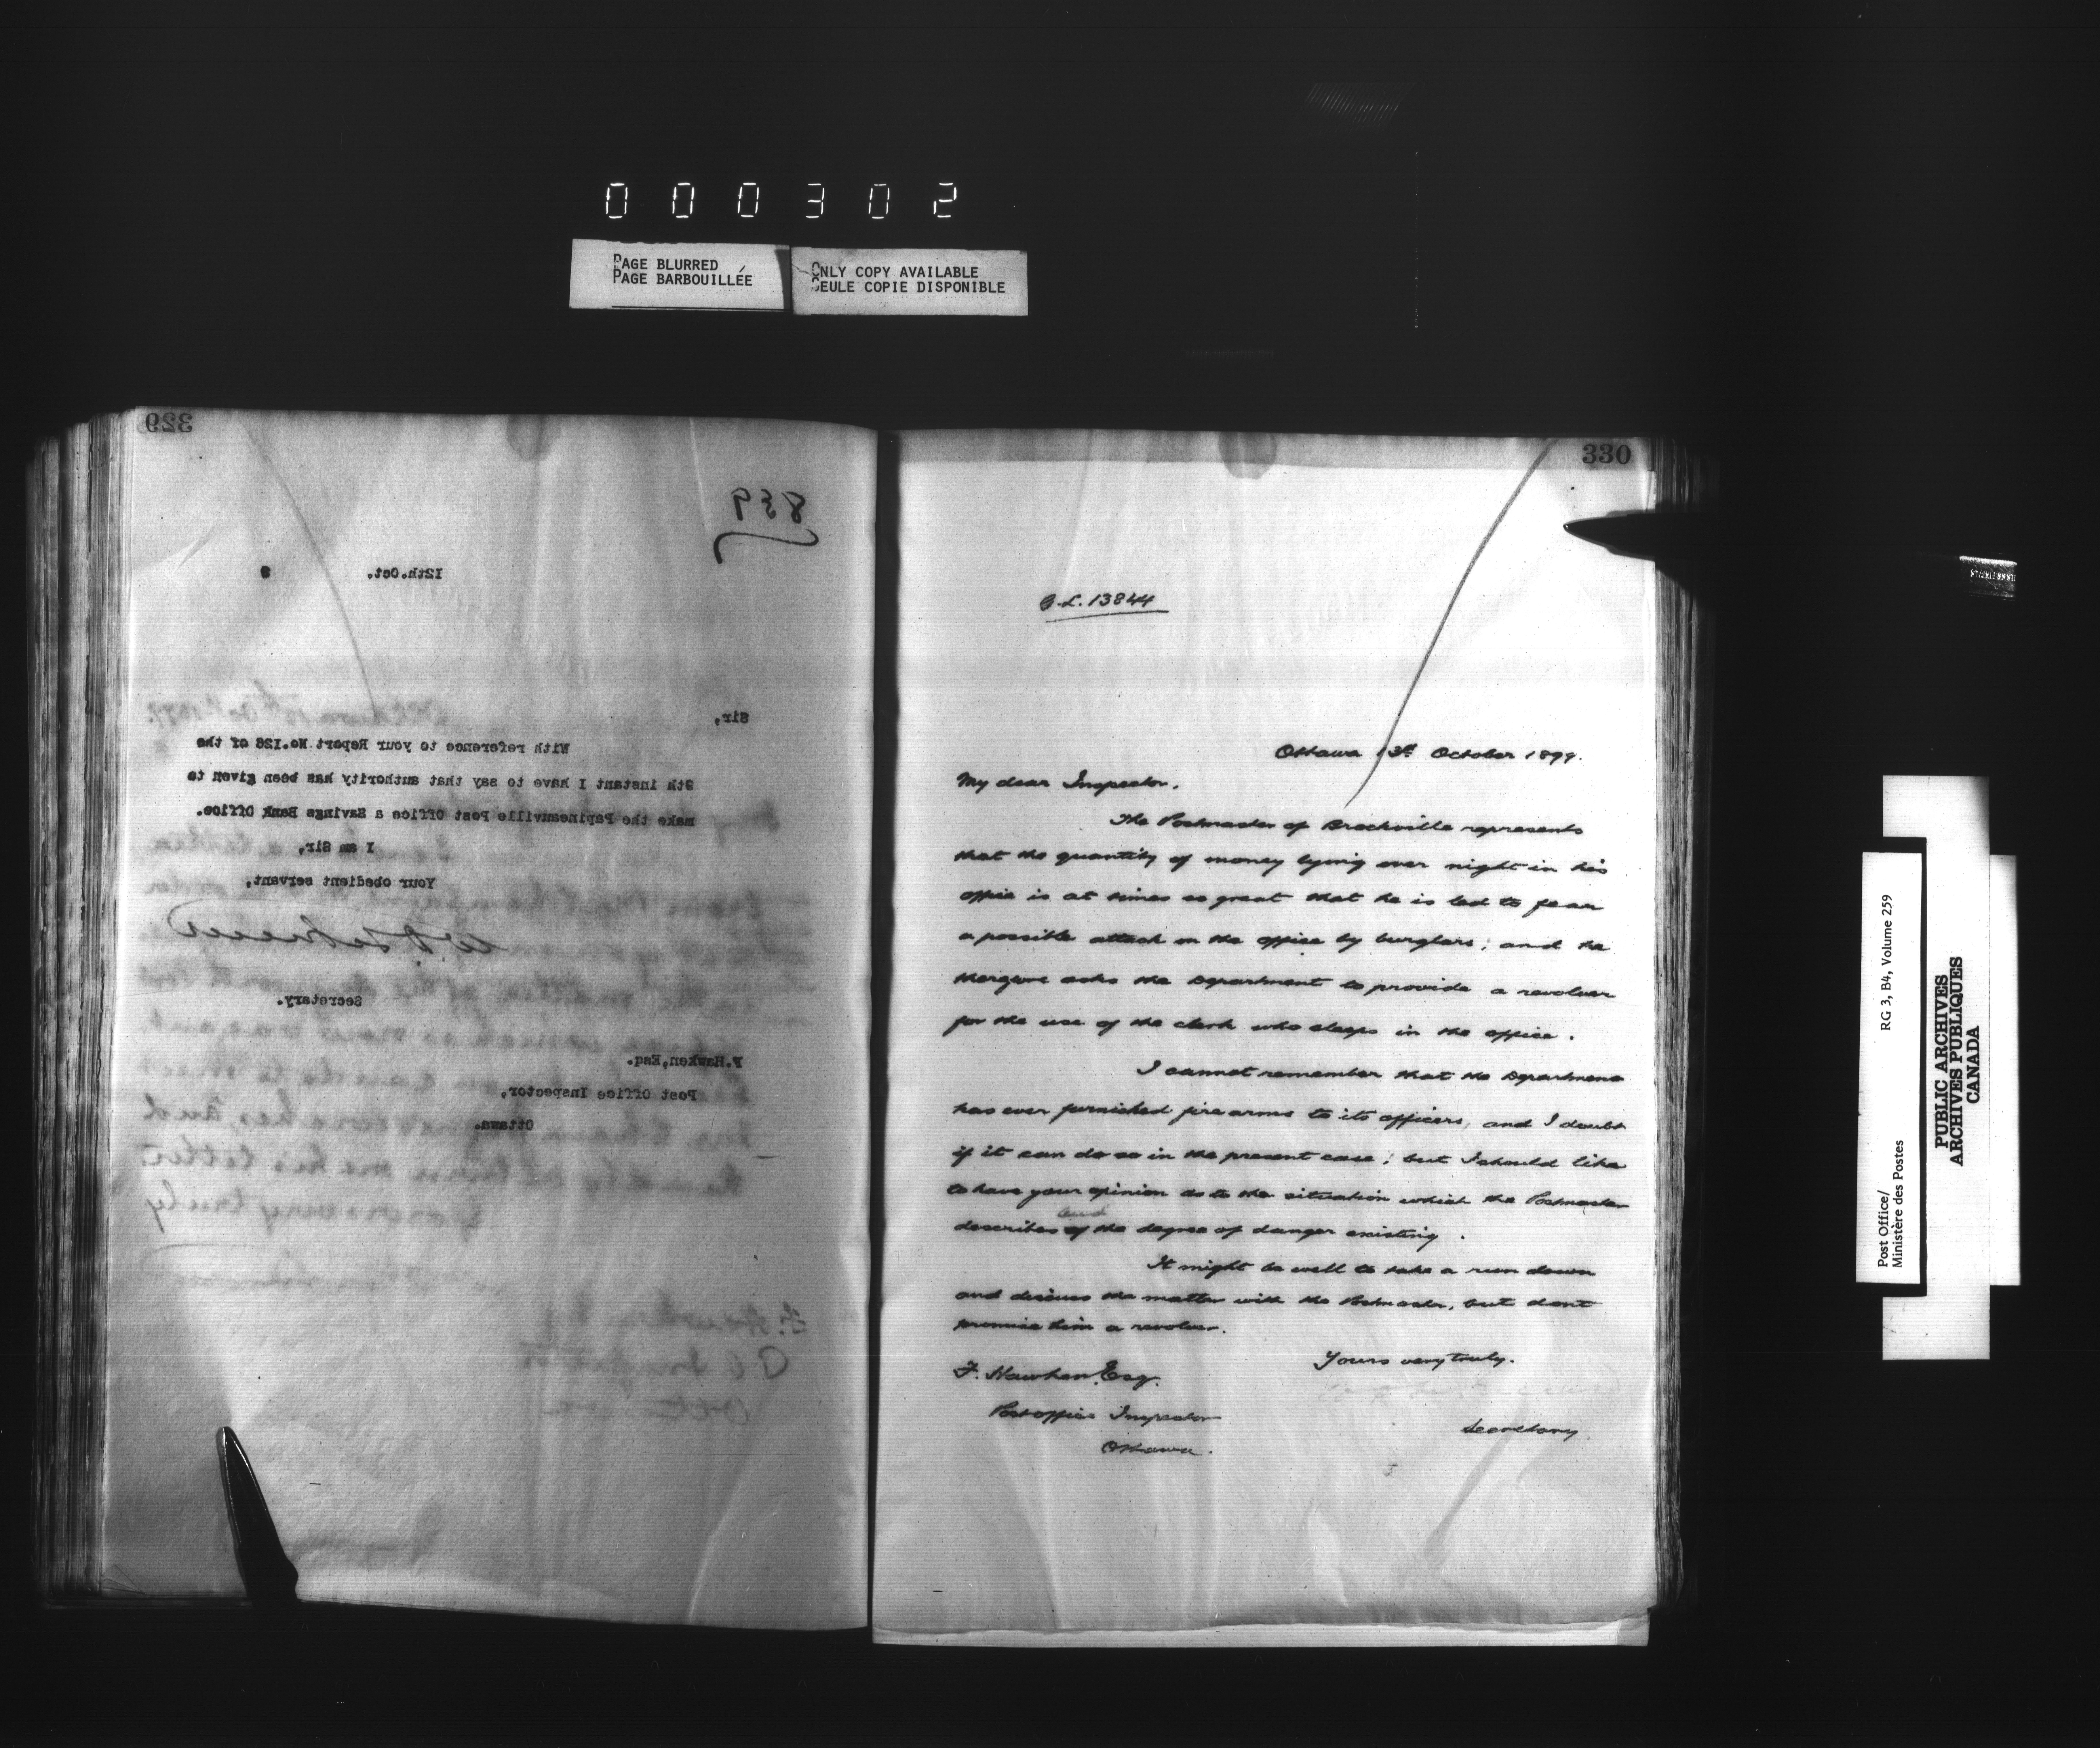 000302
PAGE BLURRED
PAGE BARBOUILLÉE
ONLY COPY AVAILABLE
SEULE COPIE DISPONIBLE
329
839
12th.Oct. 9
Sir,
With reference to your Report No.126 of the
9th instant I have to say that authority has been given to
make the Papineauville Post Office a Savings Bank Office.
I am Sir,
Your obedient servant,
Secretary.
F.Hawken,Esq.
Post Office Inspector,
Ottawa.
330
G.L. 13844
Ottawa 13th October 1899.
My dear Inspector,
The Postmaster of Brockville represents
that the quantity of money lying over night in his
office is at times so great that he is led to fear
a possible attack on the office by burglars; and he
therefore asks the Department to provide a revolver
for the use of the clerk who sleeps in the office.
I cannot remember that the Department
has ever furnished fire arms to its officers, and I doubt
if it can do so in the present case; but I should like
to have your opinion as to the situation which the Postmaster
and
describes of the degree of danger existing.
It might be well to take a run down
and discuss the matter with the Postmaster, but dont
promise him a revolver.
Yours very truly.
Secretary.
F. Hawken, Esq.
Post office Inspector
Ottawa.
Post Office/
Ministère des Postes
RG 3, B4, Volume 259
PUBLIC ARCHIVES
ARCHIVES PUBLIQUES
CANADA